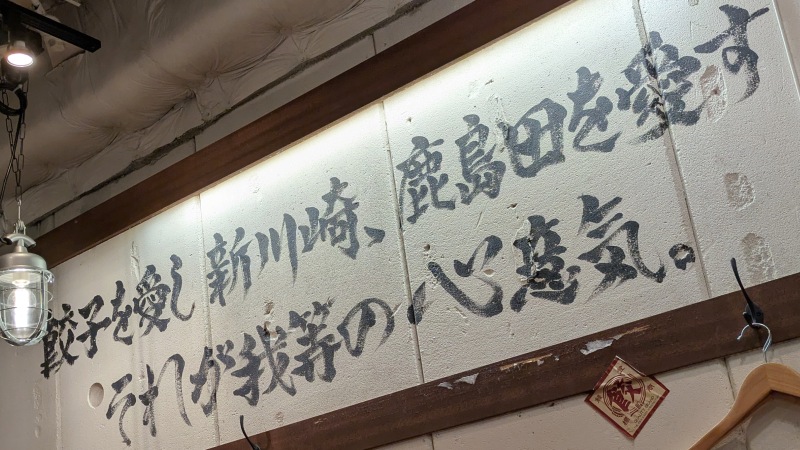 餃子を愛し新川崎、鹿島田を愛す
それが我等の心意気。
餃